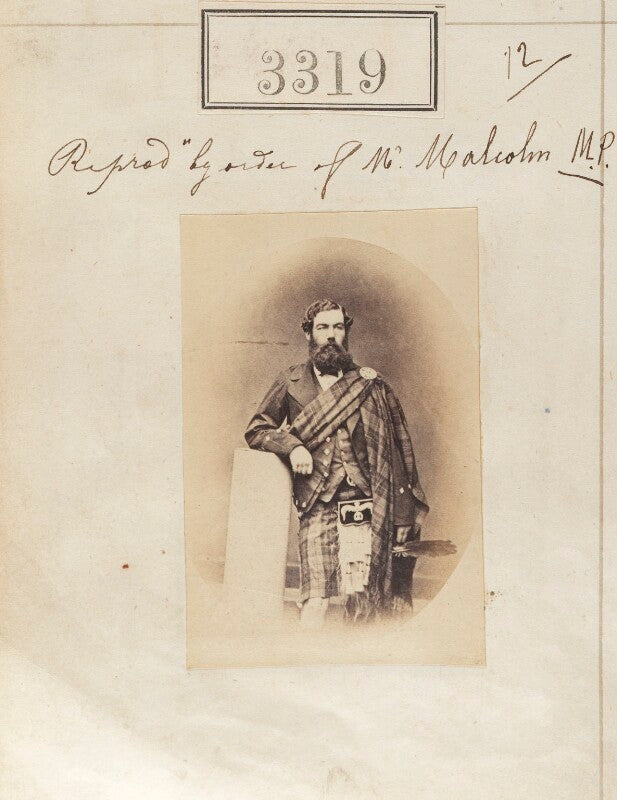 3319
12/
Reprod" by order of Mr. Malcolm M.P.